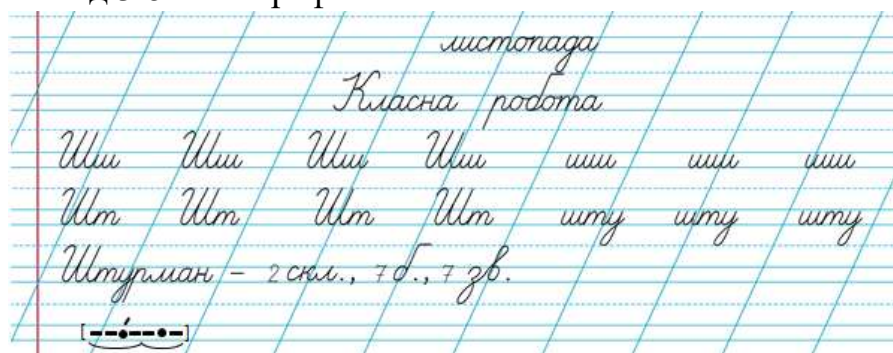 листопада
Класна робота
Шш Шш Шш Шш шш шш шш
Шт Шт Шт Шт шту шту шту
Штурман – 2 скл., 7 б., 7 зв.
[– – • – – • –]